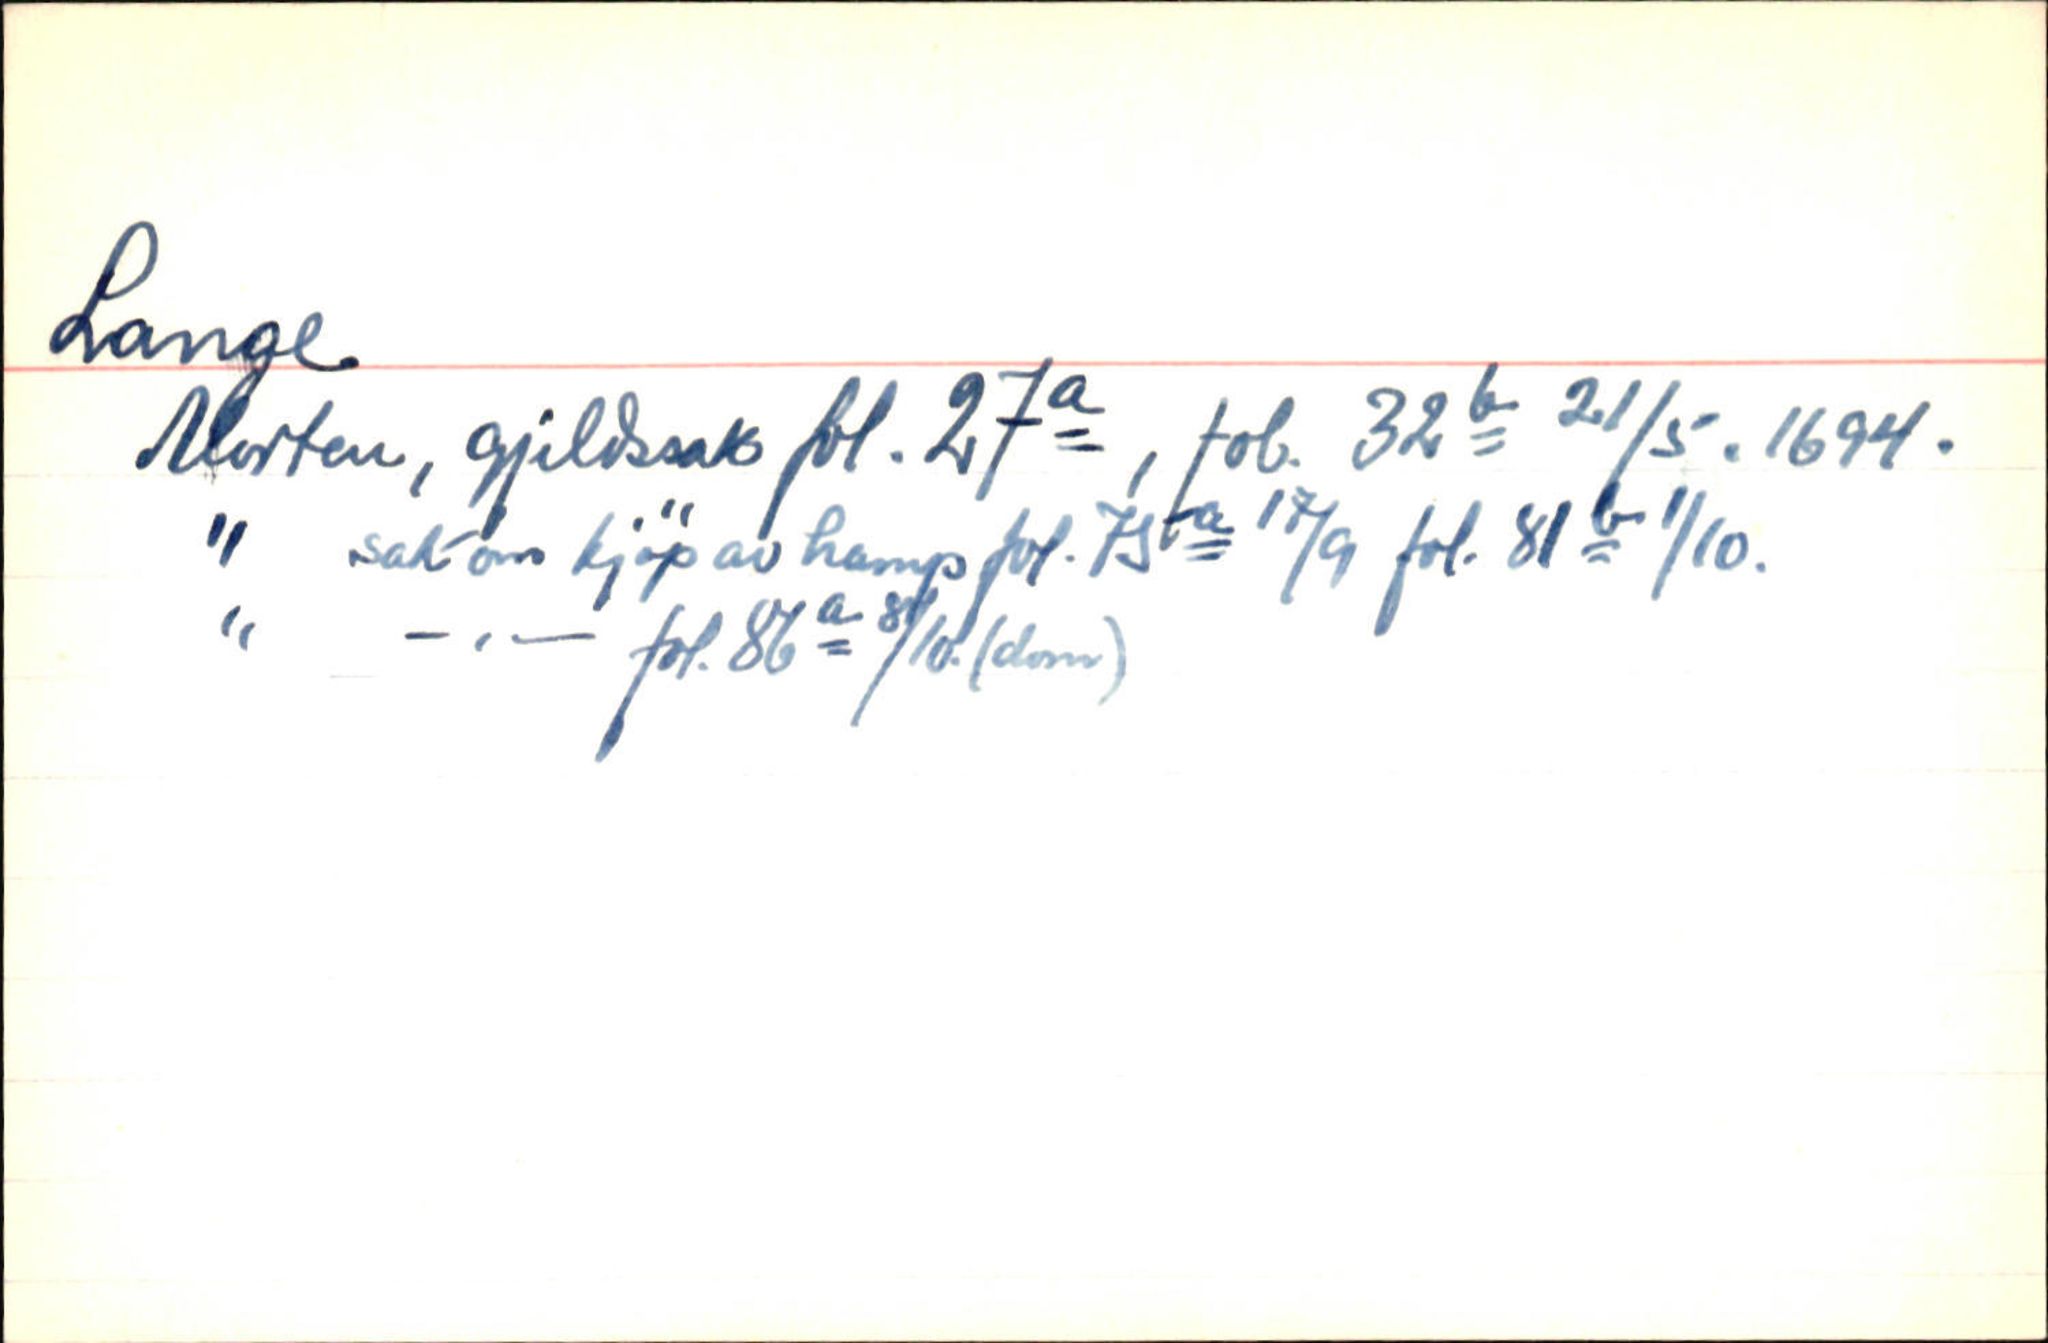 Lange
Morten, gjeldssak fol. 27a, fol. 32b 21/5. 1694.
" sak om kjöp av hamp fol. 75a 17/9 fol. 81b 1/10.
" — " — fol. 86a 8/10. (dom)